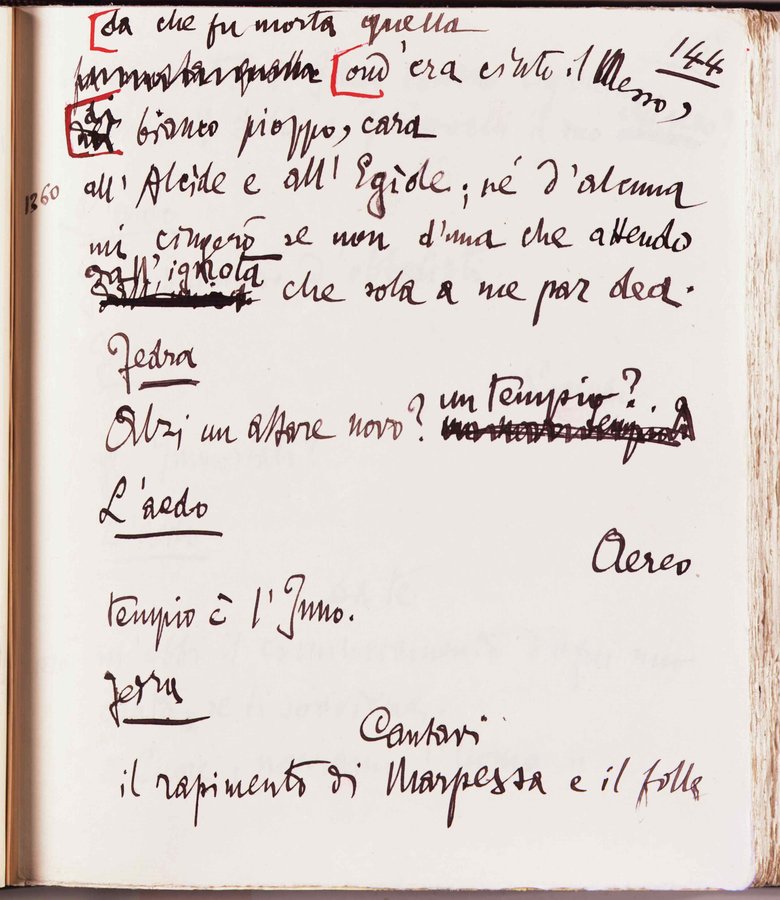 da che fu morta quella
ond'era cinto il Messo,
144
di bianco pioppo, cara
1360
all'Alcide e all'Egide; né d'alcuna
mi cingerò se non d'una che attendo
dall'ignota che sola a me par dea.
Fedra
Alzi un altare novo? un tempio?
L'aedo
Aereo
tempio è l'Inno.
Fedra
Cantavi
il rapimento di Marpessa e il folle